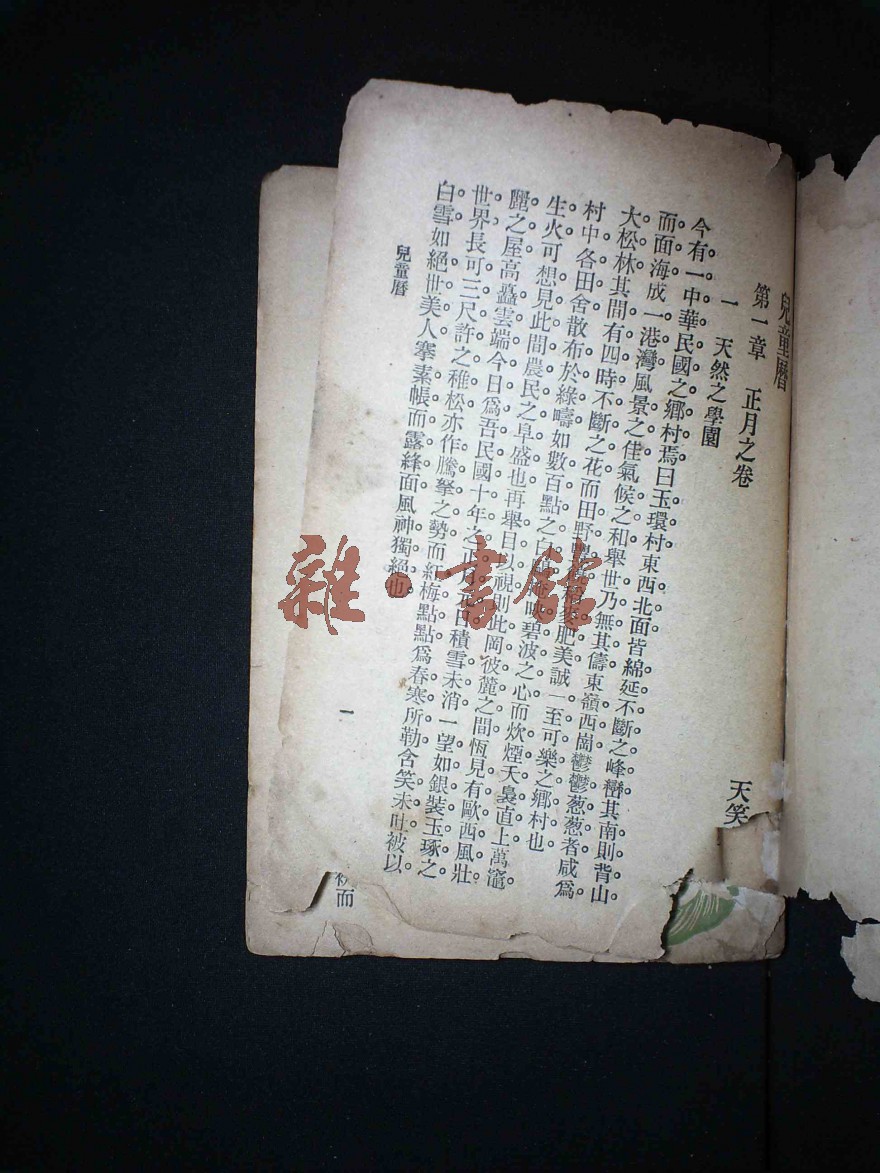 兒童曆
第一章　正月之卷
天笑
一　天然之學園
今有一中華民國之鄉村焉曰玉環村東西北面皆綿延不斷之峰巒其南則背山
而面海成一港灣風景之佳氣候之和舉世乃無其儔東嶺西崗鬱鬱葱葱者咸爲
大松林其間有四時不斷之花而田野 肥美誠一至可樂之鄉村也
村中各田舍散布於綠疇如數百點之白 碧波之心而炊煙天裊直上萬竈
生火可想見此間農民之阜盛也再舉目以視則此岡彼麓之間恆見有歐西風壯
麗之屋高矗雲端今日爲吾民國十年之正月 日積雪未消一望如銀裝玉琢之
世界長可三尺許之稚松亦作騰拏之勢而紅梅點點爲春寒所勒含笑未吐被以
白雪如絕世美人搴素帳而露絳面風神獨絕也
兒童曆
一
雜·書館
而